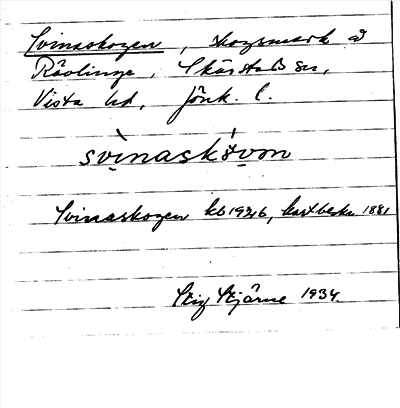 Svinaskogen, skogsmark å
Rävlinge, Skärstads sn,
Vista hd, Jönk. l.
svìnaskó̤vɷn
Svinaskogen kb 1926, kartbeskr. 1881
Stig Stjärne 1934.